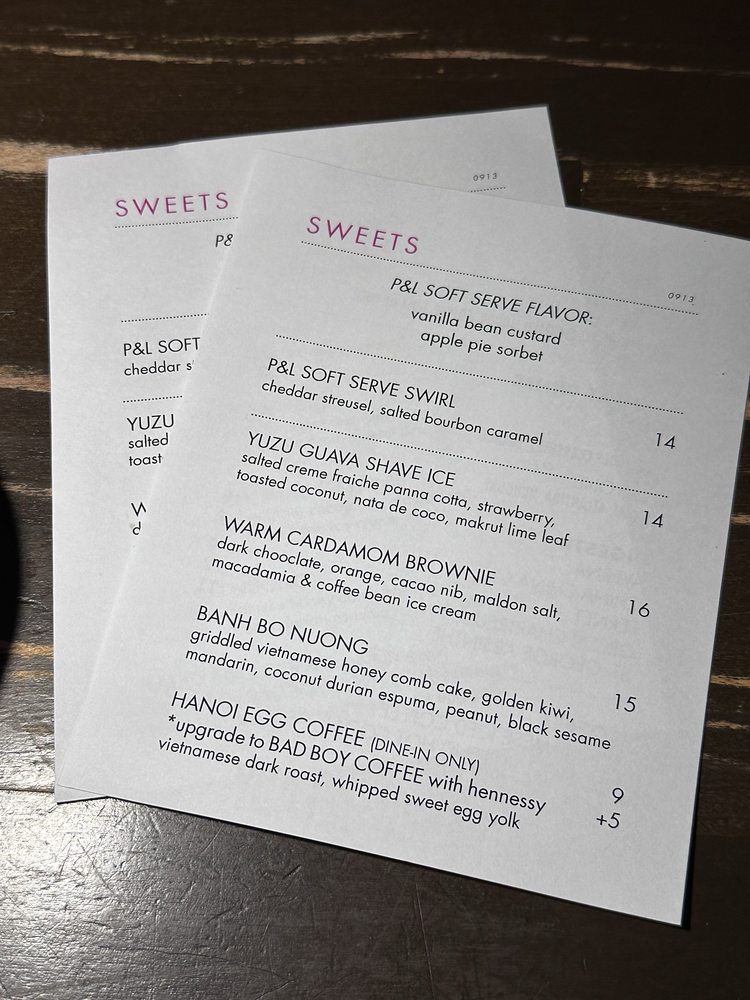 SWEETS
0913
P&
P&L SOFT
cheddar s
YUZU
salted
toast
W
d
SWEETS
0913
P&L SOFT SERVE FLAVOR:
vanilla bean custard
apple pie sorbet
P&L SOFT SERVE SWIRL
cheddar streusel, salted bourbon caramel 14
YUZU GUAVA SHAVE ICE
salted creme fraiche panna cotta, strawberry, 14
toasted coconut, nata de coco, makrut lime leaf
WARM CARDAMOM BROWNIE
dark chooclate, orange, cacao nib, maldon salt, 16
macadamia & coffee bean ice cream
BANH BO NUONG
griddled vietnamese honey comb cake, golden kiwi, 15
mandarin, coconut durian espuma, peanut, black sesame
HANOI EGG COFFEE (DINE-IN ONLY) 9
*upgrade to BAD BOY COFFEE with hennessy +5
vietnamese dark roast, whipped sweet egg yolk